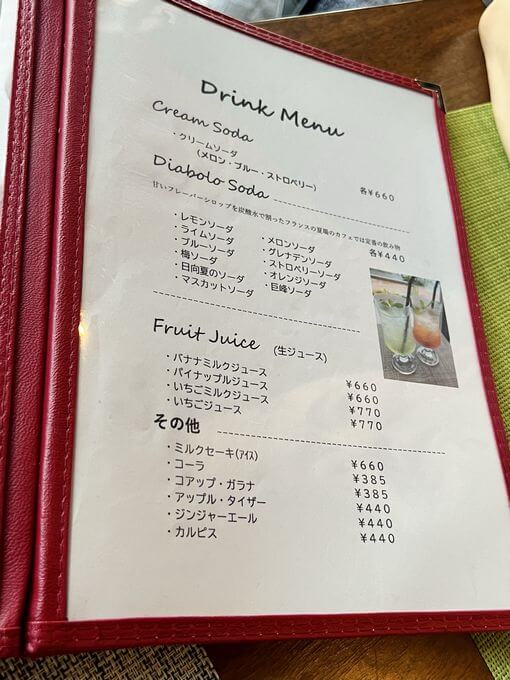 Drink Menu
Cream Soda
・クリームソーダ
(メロン・ブルー・ストロベリー) 各¥660
Diabolo Soda
甘いフレーバーシロップを炭酸水で割ったフランスの夏場のカフェでは定番の飲み物
各¥440
・レモンソーダ ・メロンソーダ
・ライムソーダ ・グレナデンソーダ
・ブルーソーダ ・ストロベリーソーダ
・梅ソーダ ・オレンジソーダ
・日向夏のソーダ ・巨峰ソーダ
・マスカットソーダ
Fruit Juice (生ジュース)
・バナナミルクジュース ¥660
・パイナップルジュース ¥660
・いちごミルクジュース ¥770
・いちごジュース ¥770
その他
・ミルクセーキ(アイス) ¥660
・コーラ ¥385
・コアップ・ガラナ ¥385
・アップル・タイザー ¥440
・ジンジャーエール ¥440
・カルピス ¥440